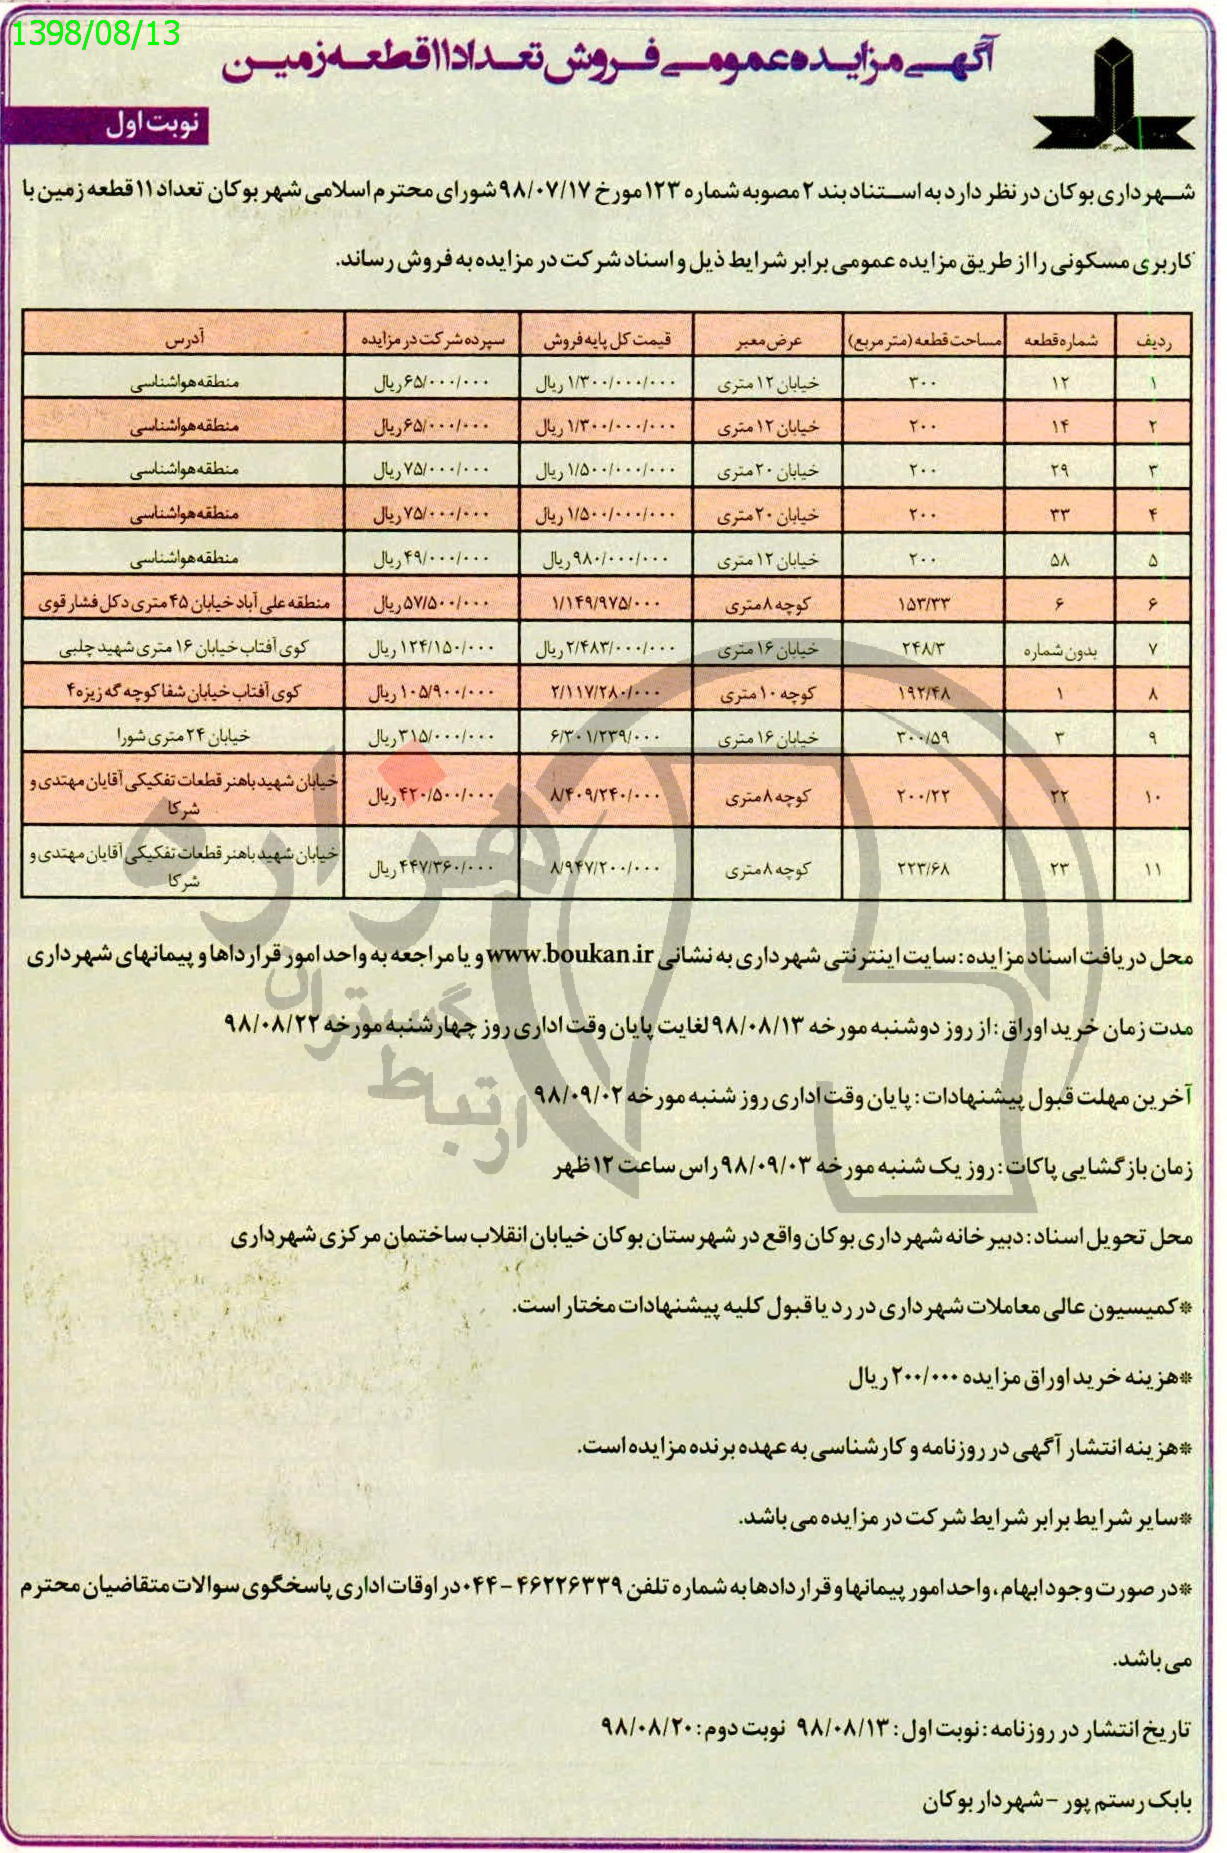 1398/08/13
آگهی مزایده عمومی فروش تعداد ۱۱ قطعه زمین
نوبت اول
شهرداری بوکان در نظر دارد به استناد بند ۲ مصوبه شماره ۱۲۳ مورخ ۹۸/۰۷/۱۷ شورای محترم اسلامی شهر بوکان تعداد ۱۱ قطعه زمین با
کاربری مسکونی را از طریق مزایده عمومی برابر شرایط ذیل و اسناد شرکت در مزایده به فروش رساند.
ردیف شماره قطعه مساحت قطعه (متر مربع) عرض معبر قیمت کل پایه فروش سپرده شرکت در مزایده آدرس
۱ ۱۲ ۳۰۰ خیابان ۱۲ متری ۱/۳۰۰/۰۰۰/۰۰۰ ریال ۶۵/۰۰۰/۰۰۰ ریال منطقه هواشناسی
۲ ۱۴ ۲۰۰ خیابان ۱۲ متری ۱/۳۰۰/۰۰۰/۰۰۰ ریال ۶۵/۰۰۰/۰۰۰ ریال منطقه هواشناسی
۳ ۲۹ ۲۰۰ خیابان ۲۰ متری ۱/۵۰۰/۰۰۰/۰۰۰ ریال ۷۵/۰۰۰/۰۰۰ ریال منطقه هواشناسی
۴ ۳۳ ۲۰۰ خیابان ۲۰ متری ۱/۵۰۰/۰۰۰/۰۰۰ ریال ۷۵/۰۰۰/۰۰۰ ریال منطقه هواشناسی
۵ ۵۸ ۲۰۰ خیابان ۱۲ متری ۹۸۰/۰۰۰/۰۰۰ ریال ۴۹/۰۰۰/۰۰۰ ریال منطقه هواشناسی
۶ ۶ ۱۵۳/۳۳ کوچه ۸ متری ۱/۱۴۹/۹۷۵/۰۰۰ ۵۷/۵۰۰/۰۰۰ ریال منطقه علی آباد خیابان ۴۵ متری دکل فشار قوی
۷ بدون شماره ۲۴۸/۳ خیابان ۱۶ متری ۲/۴۸۳/۰۰۰/۰۰۰ ریال ۱۲۴/۱۵۰/۰۰۰ ریال کوی آفتاب خیابان ۱۶ متری شهید چلبی
۸ ۱ ۱۹۲/۴۸ کوچه ۱۰ متری ۲/۱۱۷/۲۸۰/۰۰۰ ۱۰۵/۹۰۰/۰۰۰ ریال کوی آفتاب خیابان شفا کوچه گه زیزه ۴
۹ ۳ ۳۰۰/۵۹ خیابان ۱۶ متری ۶/۳۰۱/۲۳۹/۰۰۰ ۳۱۵/۰۰۰/۰۰۰ ریال خیابان ۲۴ متری شورا
۱۰ ۲۲ ۲۰۰/۲۲ کوچه ۸ متری ۸/۴۰۹/۲۴۰/۰۰۰ ۴۲۰/۵۰۰/۰۰۰ ریال خیابان شهید باهنر قطعات تفکیکی آقایان مهتدی و
شرکا
۱۱ ۲۳ ۲۲۳/۶۸ کوچه ۸ متری ۸/۹۴۷/۲۰۰/۰۰۰ ۴۴۷/۳۶۰/۰۰۰ ریال خیابان شهید باهنر قطعات تفکیکی آقایان مهتدی و
شرکا
محل دریافت اسناد مزایده : سایت اینترنتی شهرداری به نشانی www.boukan.ir و یا مراجعه به واحد امور قرارداها و پیمانهای شهرداری
مدت زمان خرید اوراق : از روز دوشنبه مورخه ۹۸/۰۸/۱۳ لغایت پایان وقت اداری روز چهارشنبه مورخه ۹۸/۰۸/۲۲
آخرین مهلت قبول پیشنهادات : پایان وقت اداری روز شنبه مورخه ۹۸/۰۹/۰۲
زمان بازگشایی پاکات : روز یک شنبه مورخه ۹۸/۰۹/۰۳ راس ساعت ۱۲ ظهر
محل تحویل اسناد : دبیرخانه شهرداری بوکان واقع در شهرستان بوکان خیابان انقلاب ساختمان مرکزی شهرداری
*کمیسیون عالی معاملات شهرداری در رد یا قبول کلیه پیشنهادات مختار است.
*هزینه خرید اوراق مزایده ۲۰۰/۰۰۰ ریال
*هزینه انتشار آگهی در روزنامه و کارشناسی به عهده برنده مزایده است.
*سایر شرایط برابر شرایط شرکت در مزایده می باشد.
*در صورت وجود ابهام ، واحد امور پیمانها و قراردادها به شماره تلفن ۴۶۲۲۶۳۳۹-۰۴۴ در اوقات اداری پاسخگوی سوالات متقاضیان محترم
می باشد.
تاریخ انتشار در روزنامه : نوبت اول : ۹۸/۰۸/۱۳ نوبت دوم : ۹۸/۰۸/۲۰
بابک رستم پور - شهردار بوکان
هزاره
ارتباط گستران